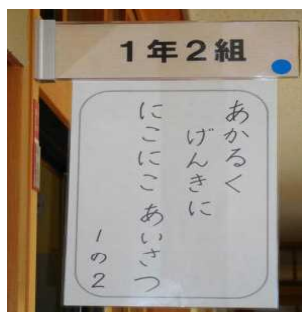 1年2組
あかるく
げんきに
にこにこ あいさつ
1の2